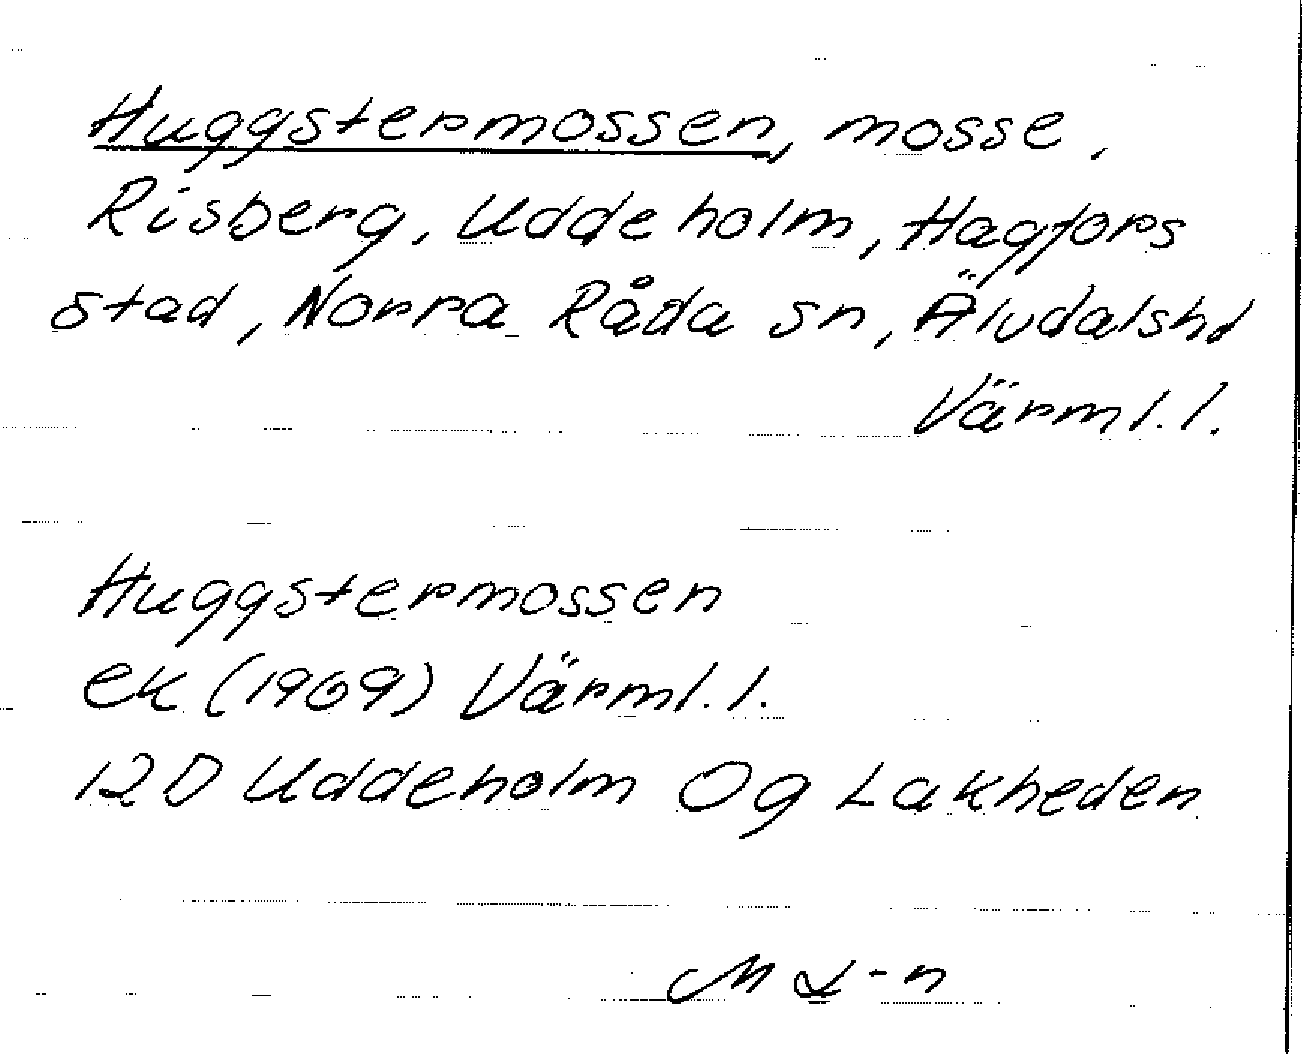 Huggstermossen, mosse,
Risberg, Uddeholm, Hagfors
stad, Norra Råda sn, Älvdalshd
Värml. l.
Huggstermossen
ek (1909) Värml. l.
12D Uddeholm Og Lakheden